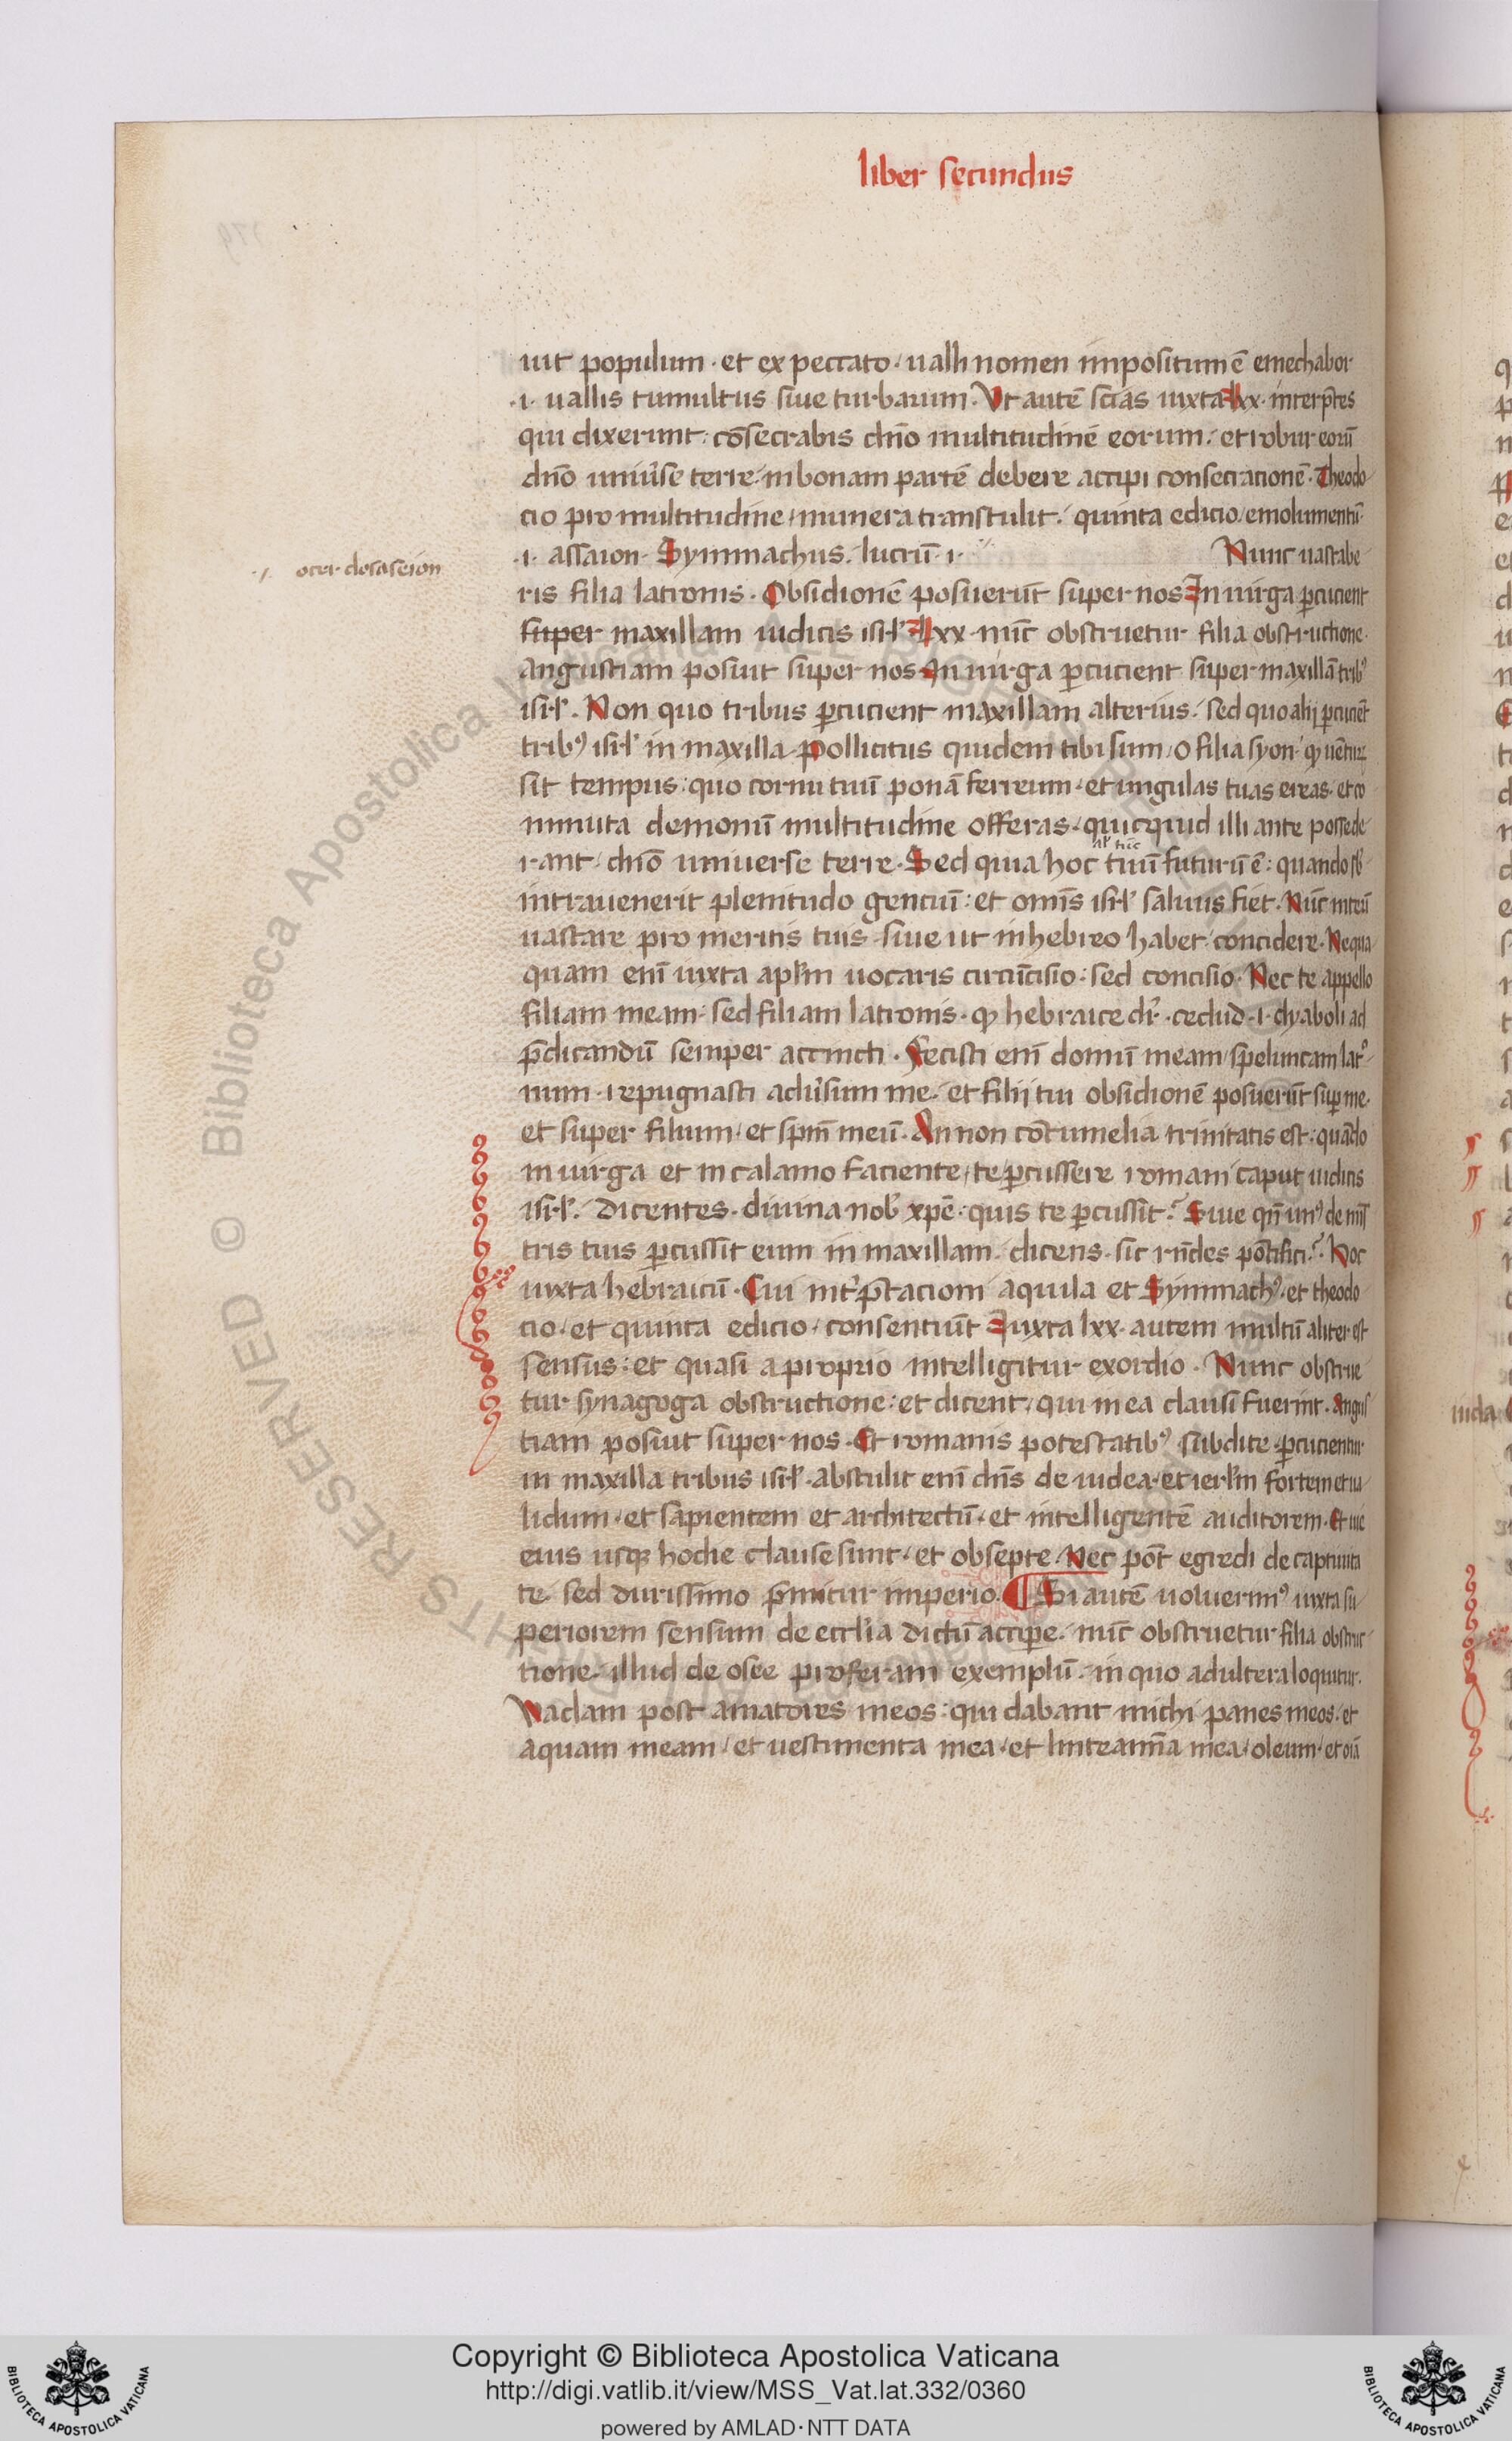 liber secundus
uit populum · et ex peccato / ualli nomen impositum ē emechabor·
·i· uallis tumultus siue turbarum. Vt autē scias iuxta lxx· interp̄tes
qui dixerunt: cōsecrabis dn̄o multitudinē eorum / et robur eoru᷒
dn̄o uniu᷒se terre / in bonam partē debere accipi consecrationē· Theodo
cio pro multitudine / munera transtulit / quinta edicio / emolumentū
·i· assaion· Symmachus / lucrū ·i· Nunc uastabe
oter dosaseion
ris filia latronis · Obsidionē posuerūt super nos In uirga p̄cucient
super maxillam iudicis isrl̓ lxx· nūc obstruetur filia obstructione·
Angustiam posuit super nos· In uirga p̄cucient super maxillā trib᷒
isrl̓· Non quo tribus p̄cucient maxillam alterius / sed quo alij p̄cuciēt
trib᷒ isrl̓ in maxilla· pollicitus quidem tibi sum / o filia syon
sit tempus: quo cornu tuū ponā ferreum / et ungulas tuas ereas· et co
minuta demoniū multitudine offeras / quicquid illi ante possede
rant / dn̄o uniuerse terre· Sed quia hoc tuū futurū ē: quando
al' tūc
intrauenerit plenitudo genciū: et omīs isrl̓ saluus fiet· Nūc interī
uastare pro meritis tuis· siue ut in hebreo habet / concidere· Nequa
quam enī iuxta apl̓m uocaris circūcisio: sed concisio· Nec te appello
filiam meam / sed filiam latronis· hebraice dr̄· cedud ·i· dyaboli ad
p̄dicandū semper accincti· Fecisti enī domū meam / speluncam lat᷒
num· repugnasti adu᷒sum me / et filij tui obsidionē posuerūt sup me·
et super filium / et spm̄ meū· An non cōtumelia trinitatis est: quādo
in uirga et in calamo faciente / te p̄cussere romani caput iudicis
isrl̓ / dicentes· diuina nob᷒ xpē: quis te p̄cussit? Siue qn̄ un᷒ de mīs
tris tuis p̄cussit eum in maxillam / dicens· sic rn̄des pōtifici? Hoc
iuxta hebraicū· Cui int᷒p̄tacioni aquila et Symmach᷒ / et theodo
cio / et quinta edicio / consentiūt Iuxta lxx· autem multū aliter est
sensus: et quasi a proprio intelligitur exordio · Nunc obstrue
tur synagoga obstructione: et dicent / qui in ea clausi fuerint· Angus
tiam posuit super nos· Et romanis potestatib᷒ subdite / p̄cucientur
in maxilla tribus isrl̓· abstulit enī dn̄s de iudea / et ierl̓m fortem et ua
lidum / et sapientem et architectū / et intelligentē auditorem· Et uie
eius usq; hodie clause sunt / et obsepte· Nec pōt egredi de captiuita
te· sed durissimo p̄mitur imperio· ¶ Si autē uoluerim᷒ iuxta su
periorem sensum de eccl̓ia dictū accipe / nūc obstruetur filia obstruc
tione / illud de osee proferam exemplū / in quo adultera loquitur·
Vadam post amatores meos: qui dabant michi panes meos / et
aquam meam / et uestimenta mea / et linteamīa mea / oleum / et oīa
iuda
Copyright © Biblioteca Apostolica Vaticana
http://digi.vatlib.it/view/MSS_Vat.lat.332/0360
powered by AMLAD·NTT DATA
BIBLIOTECA APOSTOLICA VATICANA
BIBLIOTECA APOSTOLICA VATICANA